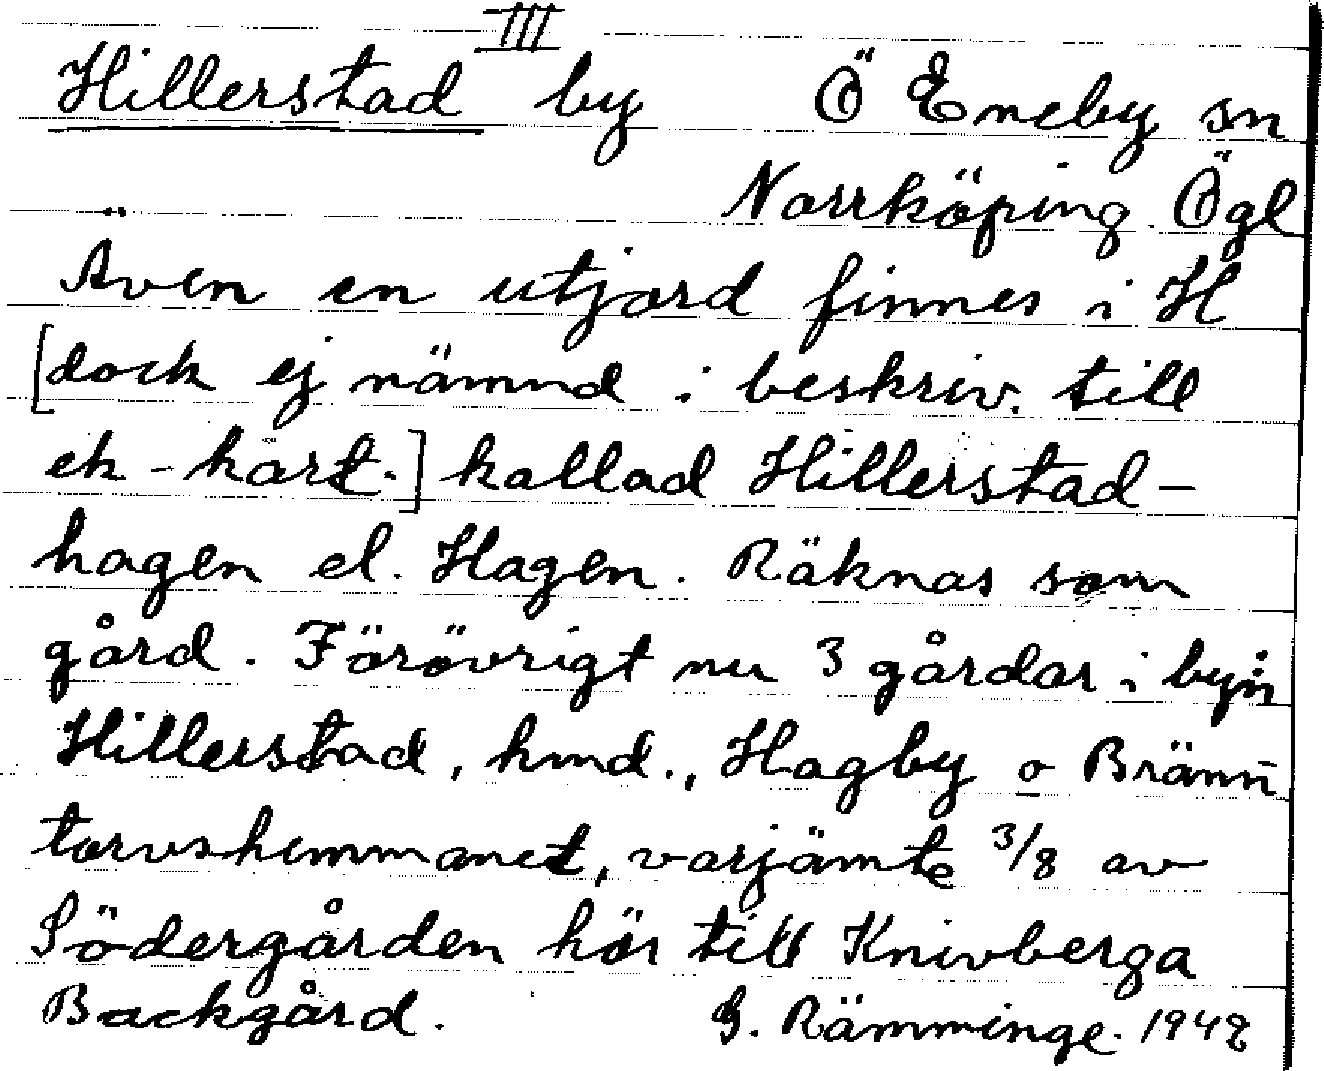 III
Hillerstad by Ö Eneby sn
Norrköping Ögl
Även en utjord finnes i H
[dock ej nämnd i beskriv. till
ek-kart.] kallad Hillerstad-
hagen el. Hagen. Räknas som
gård. Förövrigt nu 3 gårdar i byn:
Hillerstad, hmd., Hagby o Bränn-
torvshemmanet, varjämte 3/8 av
Södergården hör till Knivberga
Backgård. G. Rämminge. 1942